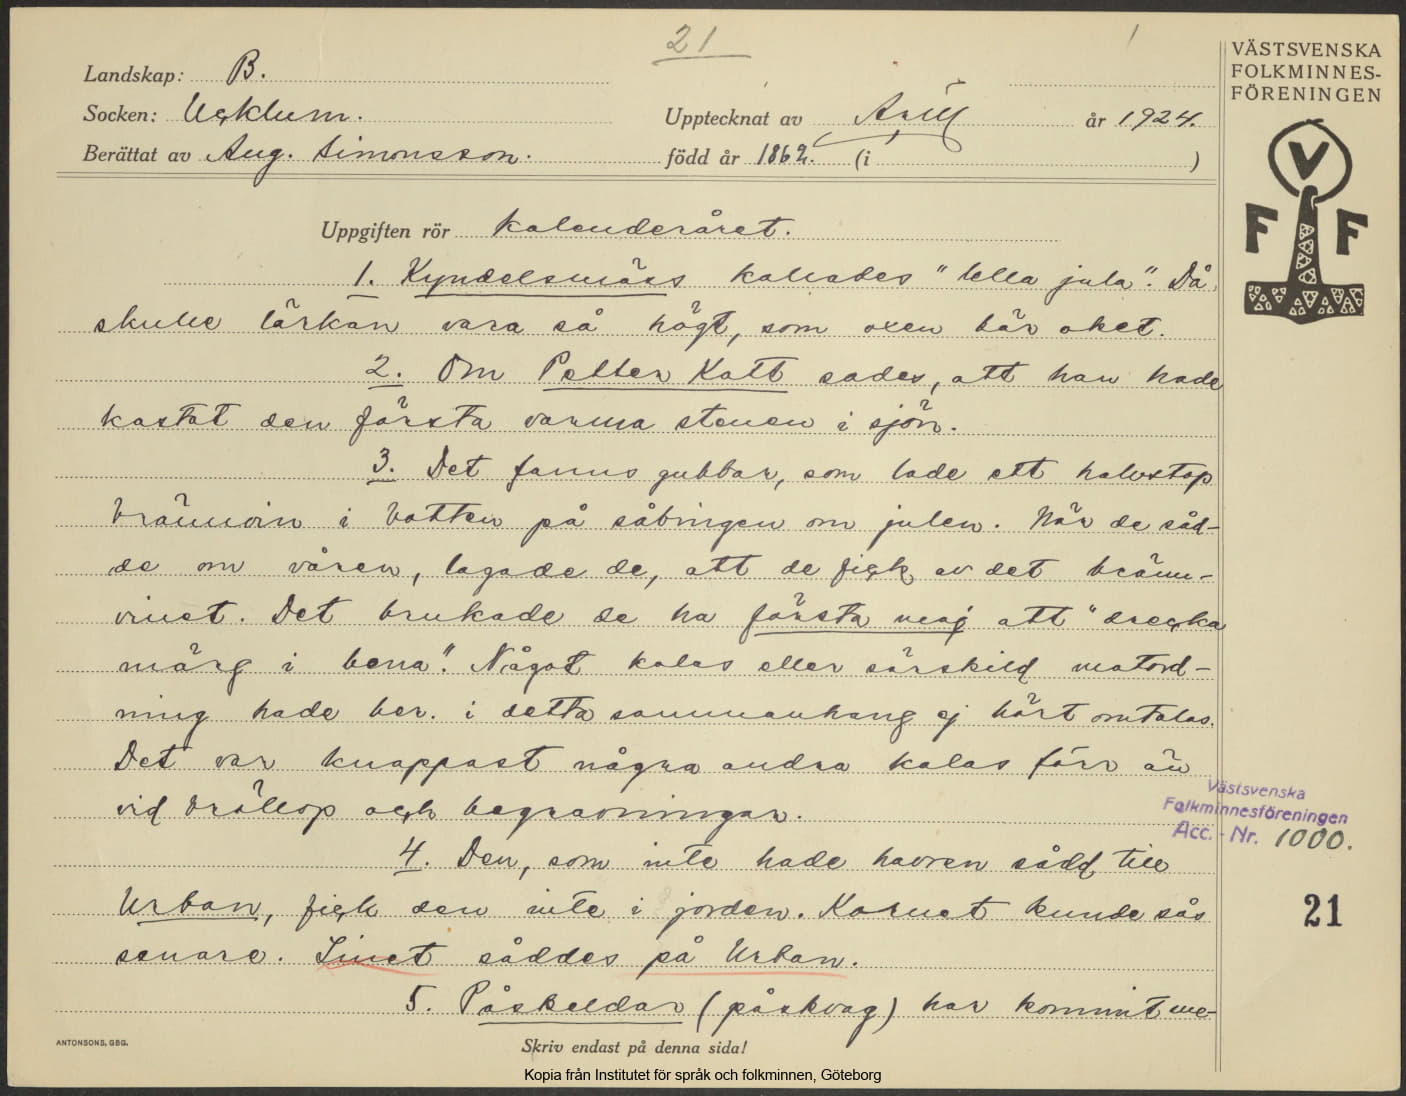 21
1
VÄSTSVENSKA
FOLKMINNES-
FÖRENINGEN
Landskap: B.
Socken: Ucklum.
Upptecknat av Arill år 1924.
Berättat av Aug. Simonsson. född år 1862. (i )
V
F F
Uppgiften rör kalenderåret.
1. Kyndelsmäss kallades "lella jula". Då
skulle lärkan vara så högt, som oxen bär oket.
2. Om Petter Katt sades, att han hade
kastat den första varma stenen i sjön.
3. Det fanns gubbar, som lade ett halvstop
brännvin i botten på såbingen om julen. När de såd-
de om våren, lagade de, att de fick av det bränn-
vinet. Det brukade de ha första maj att "drecka
märg i bena". Något kalas eller särskild matord-
ning hade ber. i detta sammanhang ej hört omtalas.
Det var knappast några andra kalas förr än
vid bröllop och begravningar.
Västsvenska
Folkminnesföreningen
Acc. - Nr. 1000.
4. Den, som inte hade havren sådd till
Urban, fick den inte i jorden. Kornet kunde sås
21
senare. Linet såddes på Urban.
5. Påskeldar (påskvag) har kommit me-
ANTONSONS, GBG.
Skriv endast på denna sida!
Kopia från Institutet för språk och folkminnen, Göteborg